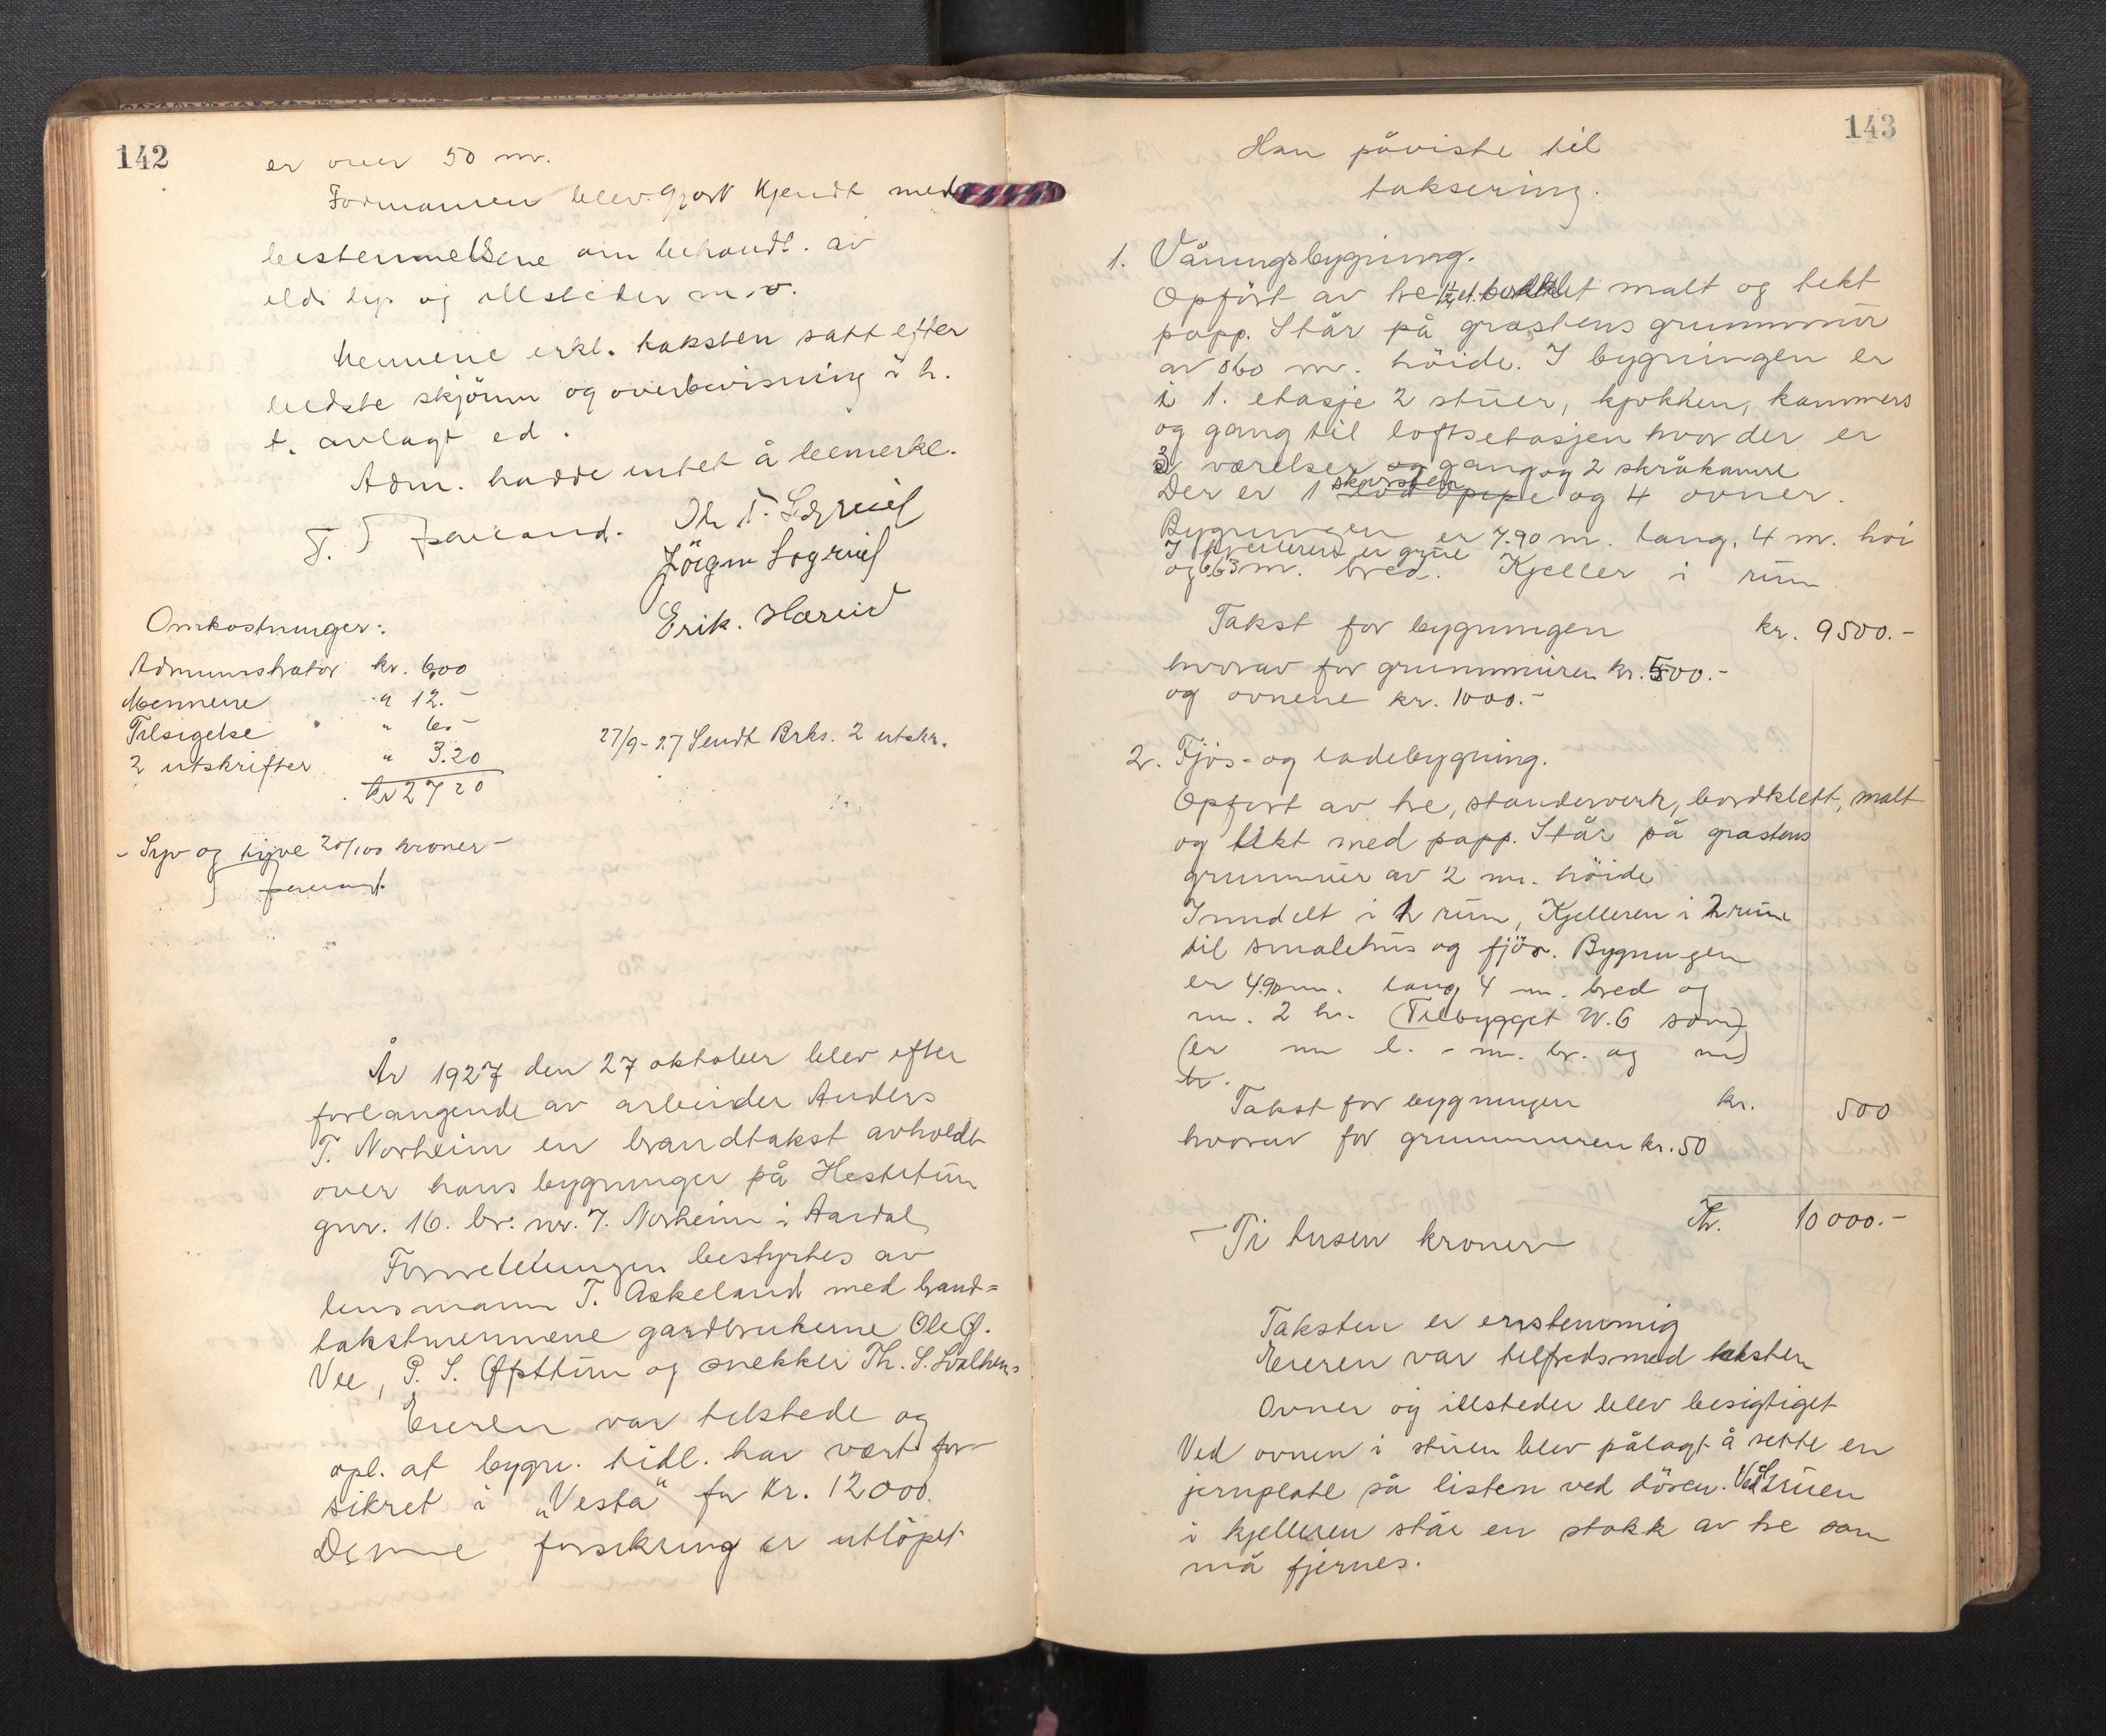 142
er over 50 m.
Formannen blev gjort kjendt med
bestemmelsene om behandl. av
ild, lys og illsteder m.v.
Mennene erkl. taksten satt efter
bedste skjönn og overbevisning i h.
t. avlagt ed.
Adm. hadde intet å bemerke.
Jörgen Sogriel
Erik. Hæreid
Omkostninger:
Administrator kr. 6,00
Mennene " 12.-
Tilsigelse " 6.-
2 utskrifter " 3.20
kr 27 20
27/9-27 Sendt Brks. 2 utskr.
- Syv og tyve 20/100 kroner -
År 1927 den 27 oktober blev efter
forlangende av arbeider Anders
T. Norheim en brandtakst avholdt
over hans bygninger på Hestetun
gnr. 16. br. nr. 7. Norheim i Aardal
Forretningen bestyrtes av
lensmann T. Askeland med brand=
takstmennene gardbrukerne Ole Ø.
Vee, P. S. Øpttun og snekker Th. S.
Eieren var tilstede og
opl. at bygn. tidl. har vært for-
sikret i "Vesta" for kr. 12000.
Denne forsikring er utlöpet
143
Han påviste til
taksering.
1. Våningsbygning.
Opfört av tre 1½ et. bordklet malt og tekt
papp. Står på gråstens grunnmur
av 060 m. höide. I bygningen er
i 1. etasje 2 stuer, kjøkken, kammers
og gang til loftsetasjen hvor der er
3 værelser og gang og 2 skråkamre
Der er 1 skorsten og 4 ovner.
Bygningen er 7.90 m. lang, 4 m. höi
I kjelleren er grue
og 6.63 m. bred. Kjeller i rum
Takst for bygningen kr. 9500.-
hvorav for grunnmuren kr. 500.-
og ovnene kr. 1000.-
2. Fjös- og ladebygning.
Opfört av tre, standerverk, bordklett, malt
og tekt med papp. Står på gråstens
grunnmur av 2 m. höide
Inndelt i 2 rum, Kjelleren i 2 rum
til smalehus og fjös. Bygningen
er 4.90 m. lang 4 m. bred og
m. 2 h. (Tilbygget W.C som)
(er m l. - m. br. og m)
h.
Takst for bygningen kr. 500
hvorav for grunnmuren kr. 50
- Ti tusen kroner - Kr. 10000.-
Taksten er enstemmig
Eieren var tilfreds med taksten
Ovner og illsteder blev besigtiget
Ved ovnen i stuen blev pålagt å sette en
jernplate på listen ved dören. Ved gruen
i kjelleren står en stokk av tre som
må fjernes.